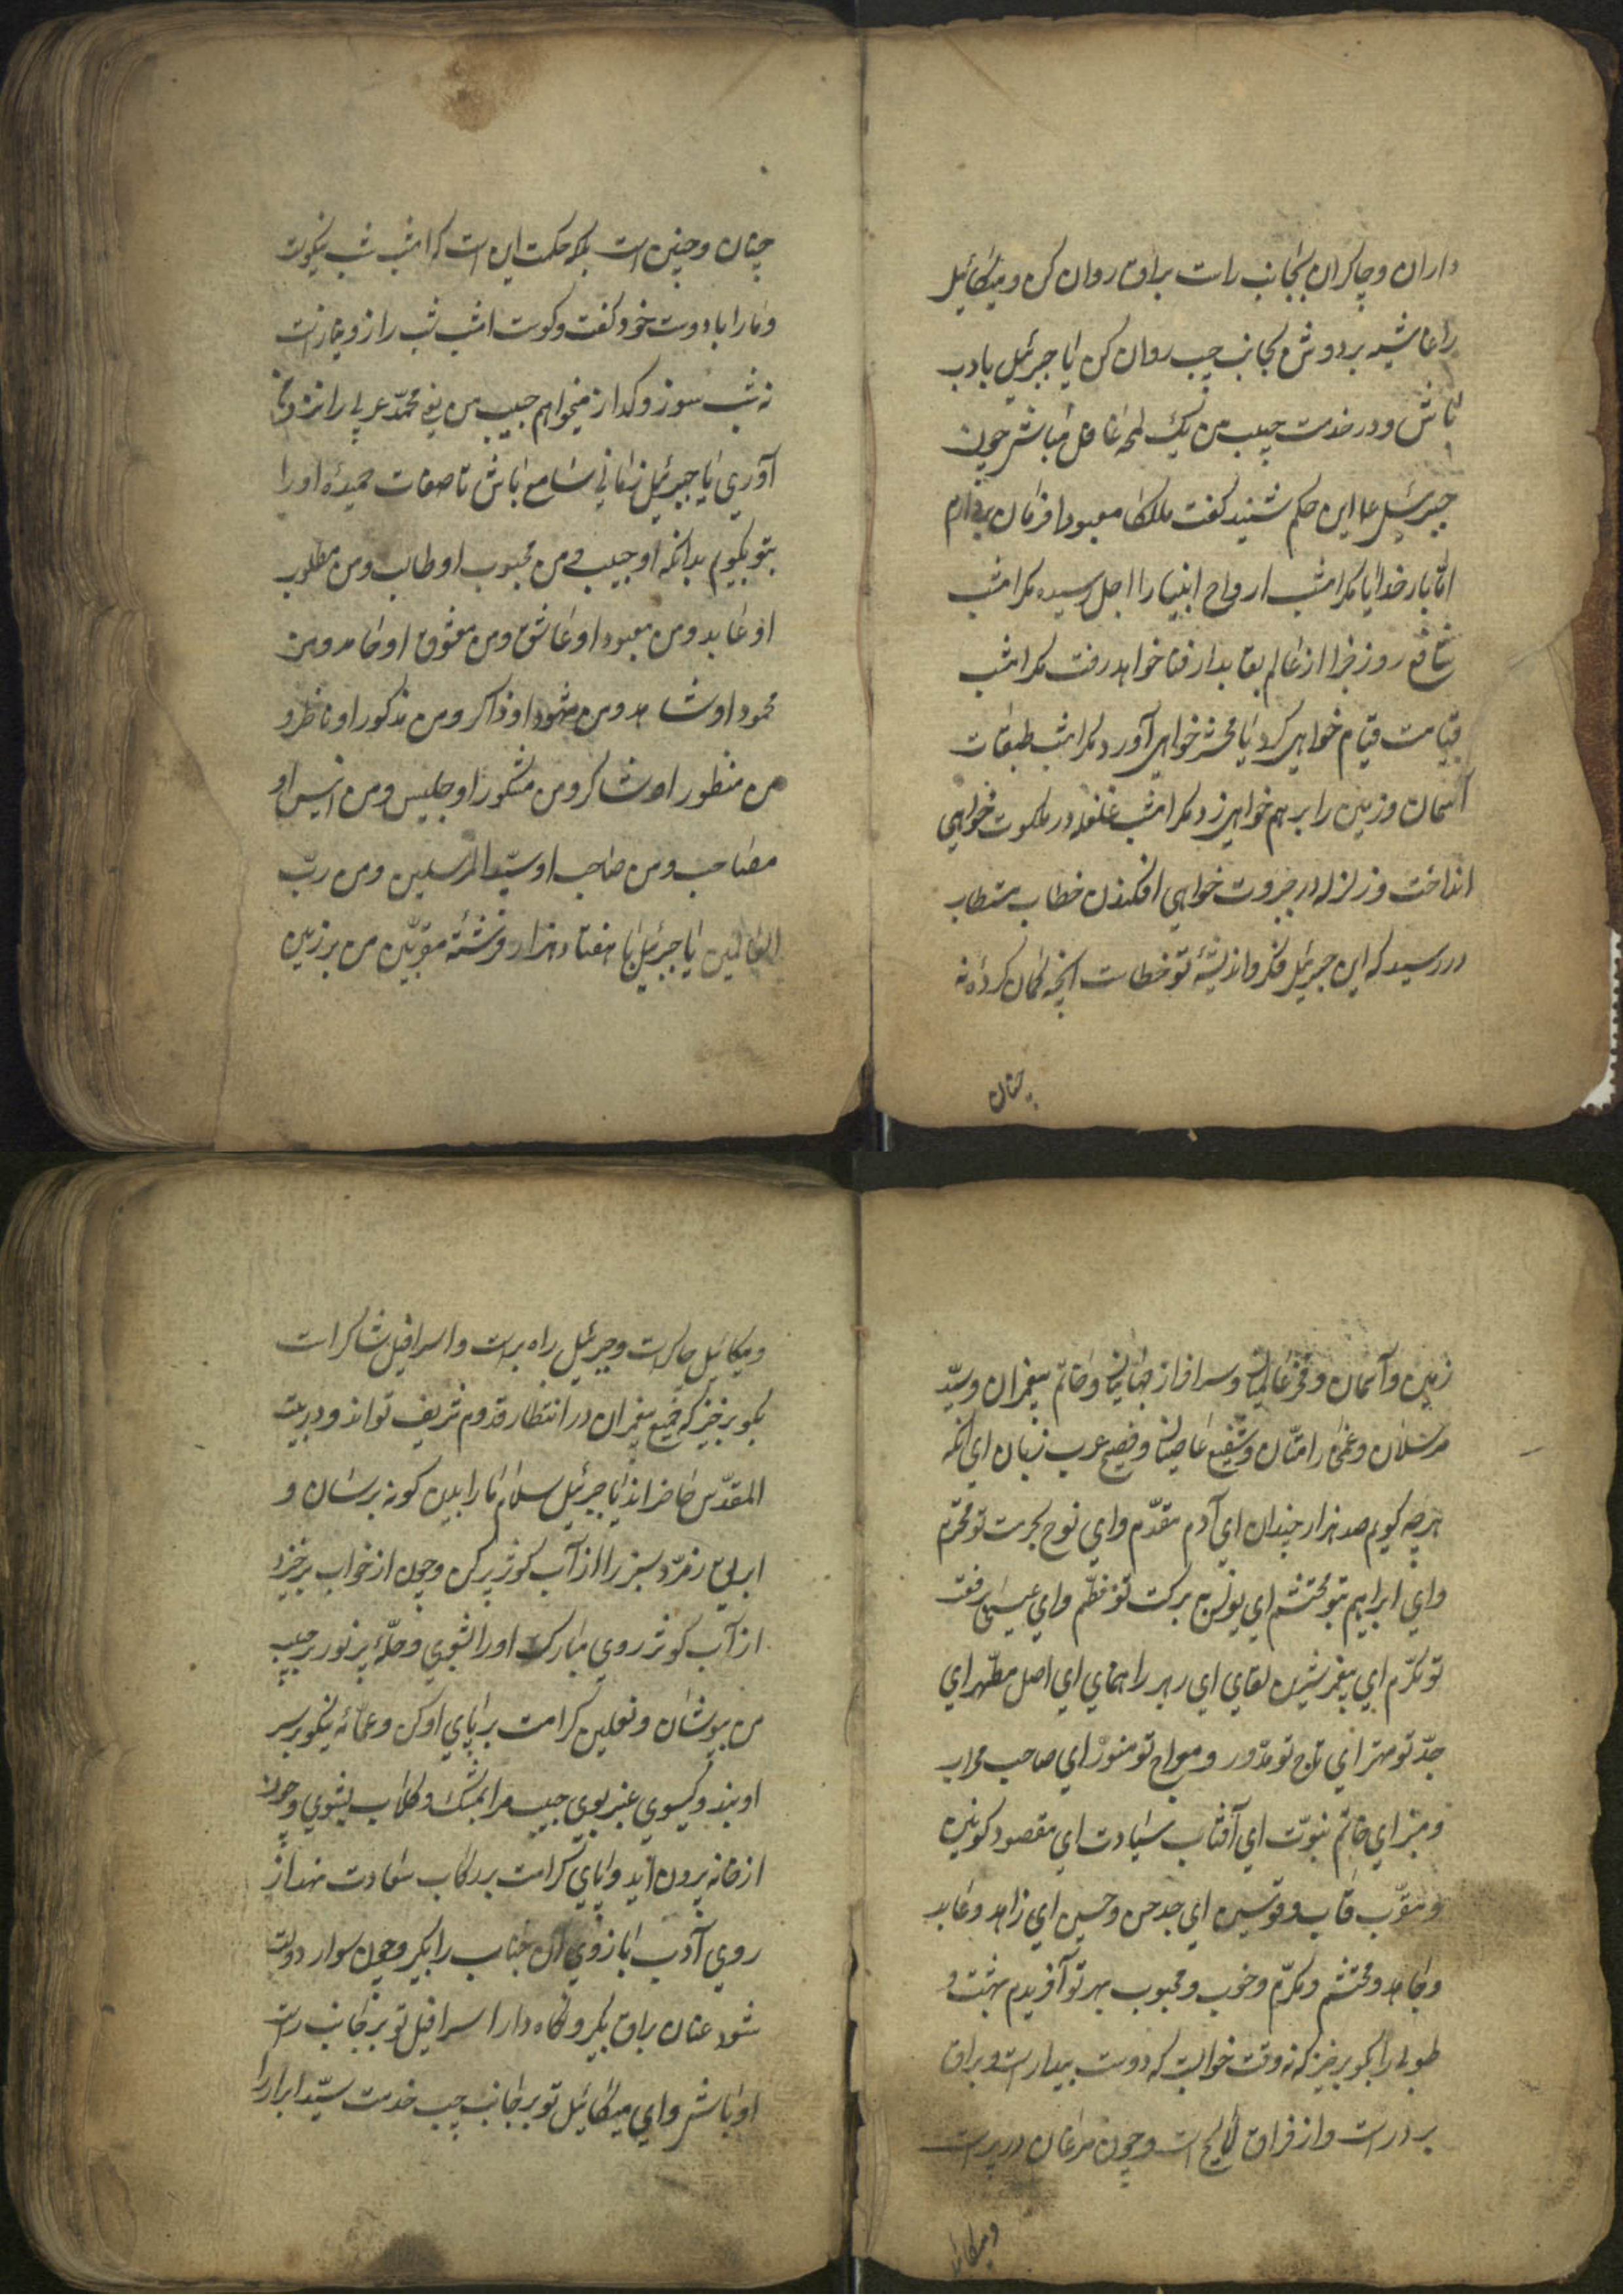 داران و چاکران بجانب راست براق روان کن و میکائیل
را غاشیه بر دوش بجانب چپ روان کن یا جبرئیل بادب
باش و در خدمت حبیب من یک لمحه غافل مباش چون
جبرئیل ع این حکم شنید گفت ملکا معبودا فرمان بردارم
اما بار خدایا مکر امشب ارواح انبیا را اجل رسیده مکر امشب
شافع روز جزا از عالم بقا بدار فنا خواهد رفت مکر امشب
قیامت قیام خواهی کرد یا محشر خواهی آورد مکر امشب طبقات
آسمان و زمین را برهم خواهی زد مکر امشب غلغله در ملکوت خواهی
انداخت و زلزله در جبروت خواهی افکندن خطاب مستطاب
در رسید که این جبرئیل فکر و اندیشهٔ تو خطاست آنچه کمان کردهٔ نه
چنان
چنان و چنین است بلکه حکمت این است که امشب شب نیکوست
و ما را با دوست خود کفت و کوست امشب شب راز و نیاز است
نه شب سوز و کداز میخواهم حبیب من یعنی محمد عربی را نزد ما
آوری یا جبرئیل زمانی سامع باش تا صفات حمیدهٔ او را
بتو بکویم بدانکه او حبیب و من محبوب او طالب و من مطلوب
او عابد و من معبود او عاشق و من معشوق او حامد و من
محمود او شاهد و من مشهود او ذاکر و من مذکور او ناظر و
من منظور او شاکر و من مشکور او جلیس و من انیس او
مصاحب و من صاحب او سید المرسلین و من رب
العالمین یا جبرئیل با هفتاد هزار فرشتهٔ مقربین من بر زمین
زمین و آسمان و فخر عالمیان و سرافراز جهانیان و خاتم پیغمبران و سید
مرسلان و شفیع عاصیان و فصیح عرب زبان ای آنکه
هرچه کویم صد هزار چندان ای آدم مقدم و ای نوح بحرمت تو محترم
و ای ابراهیم بتو محتشم ای یونس ببرکت تو معظم و ای عیسی برفعت
تو مکرم ای پیغمبر شیرین لقای ای رهبر راهنمای ای اصل مطهر ای
جد تو مهتر ای تاج تو مدور و معراج تو منور ای صاحب محراب
و منبر ای خاتم نبوت ای آفتاب سیادت ای مقصود کونین
و مقرب قاب قوسین ای جد حسن و حسین ای زاهد و عابد
و حامد و محتشم و مکرم و خوب و محبوب بهر تو آفریدم بهشت و
طوبی را بکو برخیز که نه وقت خوابست که دوست بیدار است و براق
بر در است و از فراق است و چون مرغان در پر است
و میکائیل
و میکائیل چاکر است و جبرئیل راه بر است و اسرافیل شاکر است
بکو برخیز که جمیع پیغمبران در انتظار قدوم شریف تواند و در بیت
المقدس حاضراند یا جبرئیل سلام ما را بدین کونه برسان و
ابریق زمرد سبز را از آب کوثر پر کن و چون از خواب برخیزد
از آب کوثر روی مبارک او را بشوی و حلهٔ پر نور بر حبیب
من بپوشان و نعلین کرامت بر پای او کن و عمامهٔ نیکو بر سر
او بند و کیسوی عنبر بوی حبیب مرا بمشک و کلاب بشوی و چون
از خانه بیرون آید و پای کرامت بر رکاب سعادت نهد از
روی آدب بازوی آن جناب را بکیر و چون سوار دولت
شود عنان براق بکیر و نکاه دار اسرافیل تو بر جانب راست
او باش و ای میکائیل تو بر جانب چپ خدمت سید ابرار را